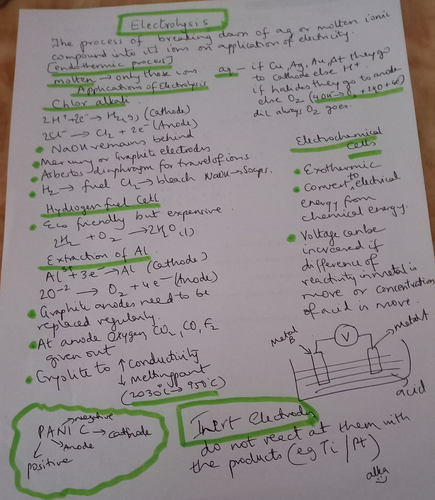 Electrolysis
The process of breaking down of aq or molten ionic
compound into it's ions on application of electricity.
[endothermic process]
molten → only those ions.
aq — if Cu, Ag, Au, Pt they go
to cathode else H+.
if halides they go to anode
else O2 (4OH- → O2 + 2H2O + 4e-)
dil always O2 goes.
Applications of Electrolysis
Chlor alkali
2H+ + 2e- → H2(g) (Cathode)
2Cl- → Cl2 + 2e- (Anode)
NaOH remains behind
Mercury or Graphite electrodes
Asbestos diaphragm for travel of ions.
H2 → fuel Cl2 → bleach NaOH → Soaps.
Hydrogen fuel Cell
Eco friendly but expensive
2H2 + O2 → 2H2O(l)
Extraction of Al
Al3+ + 3e- → Al (Cathode)
2O-2 → O2 + 4e- (Anode)
Graphite anodes need to be
replaced regularly.
At anode Oxygen, CO2, CO, F2
given out
Cryolite to ↑ Conductivity
↓ melting point
(2030°C → 950°C)
Electrochemical
Cells
Exothermic
Convert to electrical
energy from
chemical energy.
Voltage can be
increased if
difference of
reactivity in metal is
more or concentration
of acid is more.
metal B
V
metal A
acid
PANIC
negative
cathode
Anode
positive
Inert Electrodes
do not react at them with
the products (eg Ti / Pt)